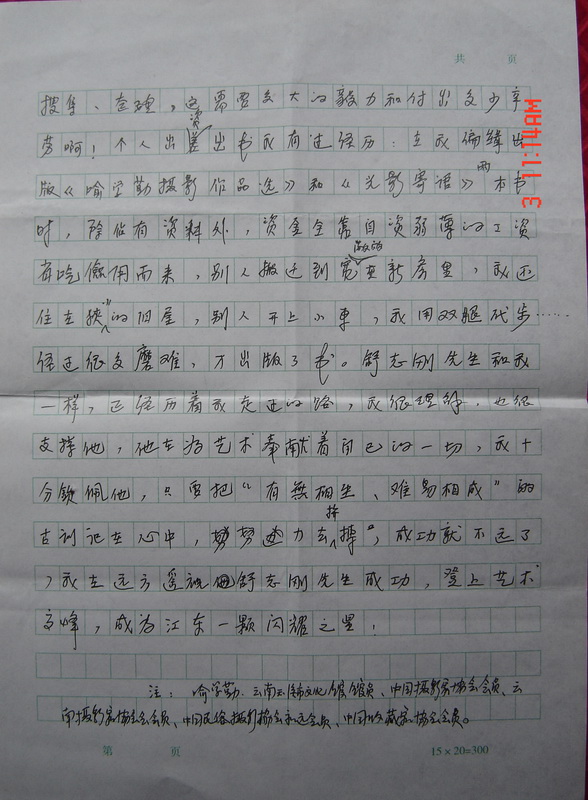 共 页
搜集、查理，这需要多大的毅力和付出多少辛
劳啊！个人出资出书我有过经历：在我编缉出
版《喻学勤摄影作品选》和《光影寄语》两本书
时，除仅有资料外，资金全靠自资弱薄的工资
省吃俭用而来，别人搬迁到宽敞的新房里，我还
住在狭小的旧屋，别人开上小車，我用双腿代步……
经过很多磨难，才出版了书。舒志刚先生和我
一样，正经历着我走过的路，我很理解，也很
支撑他，他在为艺术奉献着自己的一切，我十
分钦佩他，只要把“有無相生、难易相成”的
古训记在心中，努力去拼搏，成功就不远了
，我在远方遥祝舒志刚先生成功，登上艺术
高峰，成为江东一颗闪耀之星！
注：喻学勤.云南玉溪市文化馆馆员、中国摄影家协会会员、云
南摄影家协会会员、中国民俗摄影协会永远会员、中国收藏家协会会员。
第 页 15×20=300
3 11:14AM